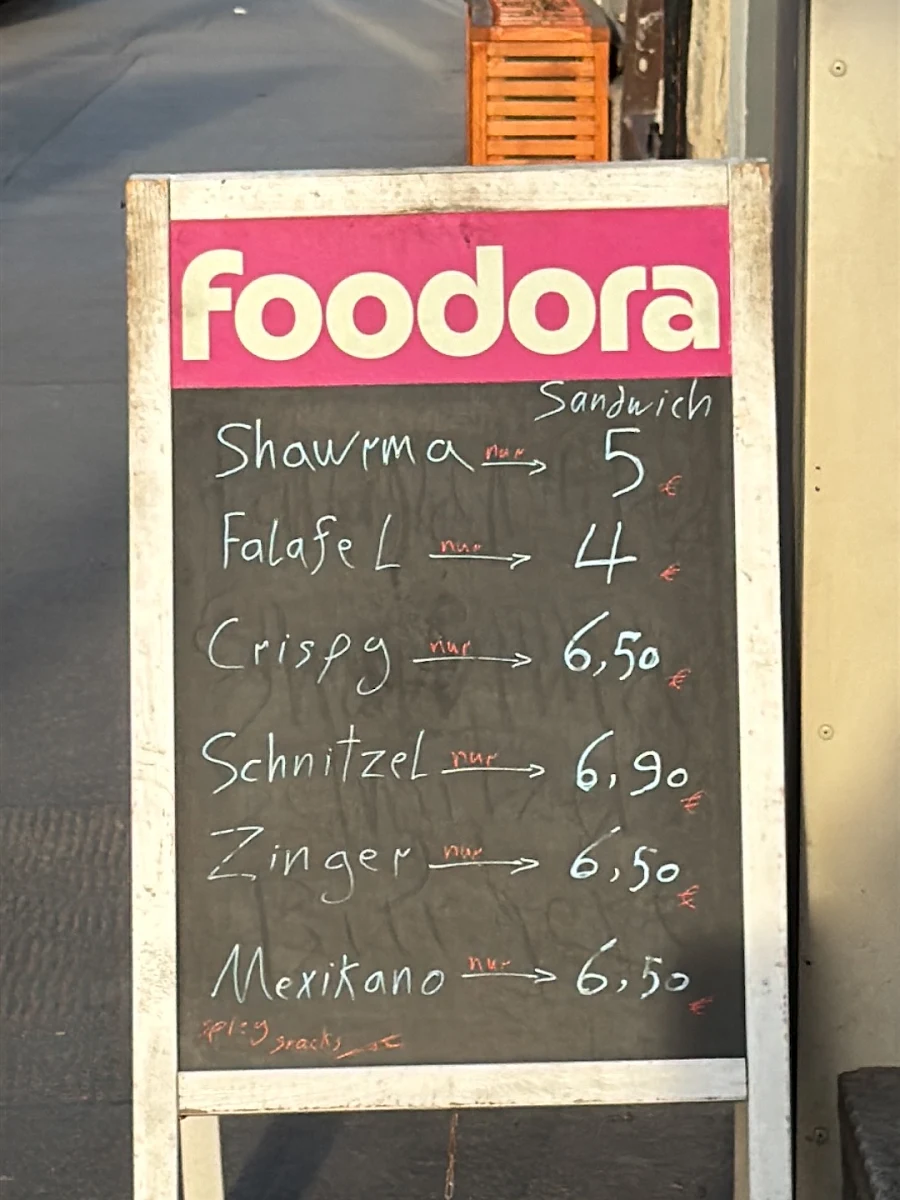 foodora
Sandwich
Shawrma nur → 5 €
Falafel nur → 4 €
Crispy nur → 6,50 €
Schnitzel nur → 6,90 €
Zinger nur → 6,50 €
Mexikano nur → 6,50 €
spicy snacks